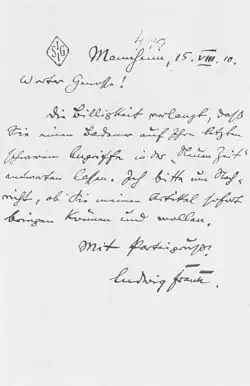 SIG
Mannheim, 15. VIII. 10.
Werter Genosse!
Die Billigkeit verlangt, daß
Sie einen Badener auf Ihre letzten
schweren Angriffe in der "Neuen Zeit"
antworten lassen. Ich bitte um Nach-
richt, ob Sie meinen Artikel sofort
bringen können und wollen.
Mit Parteigruß!
Ludwig Frank.